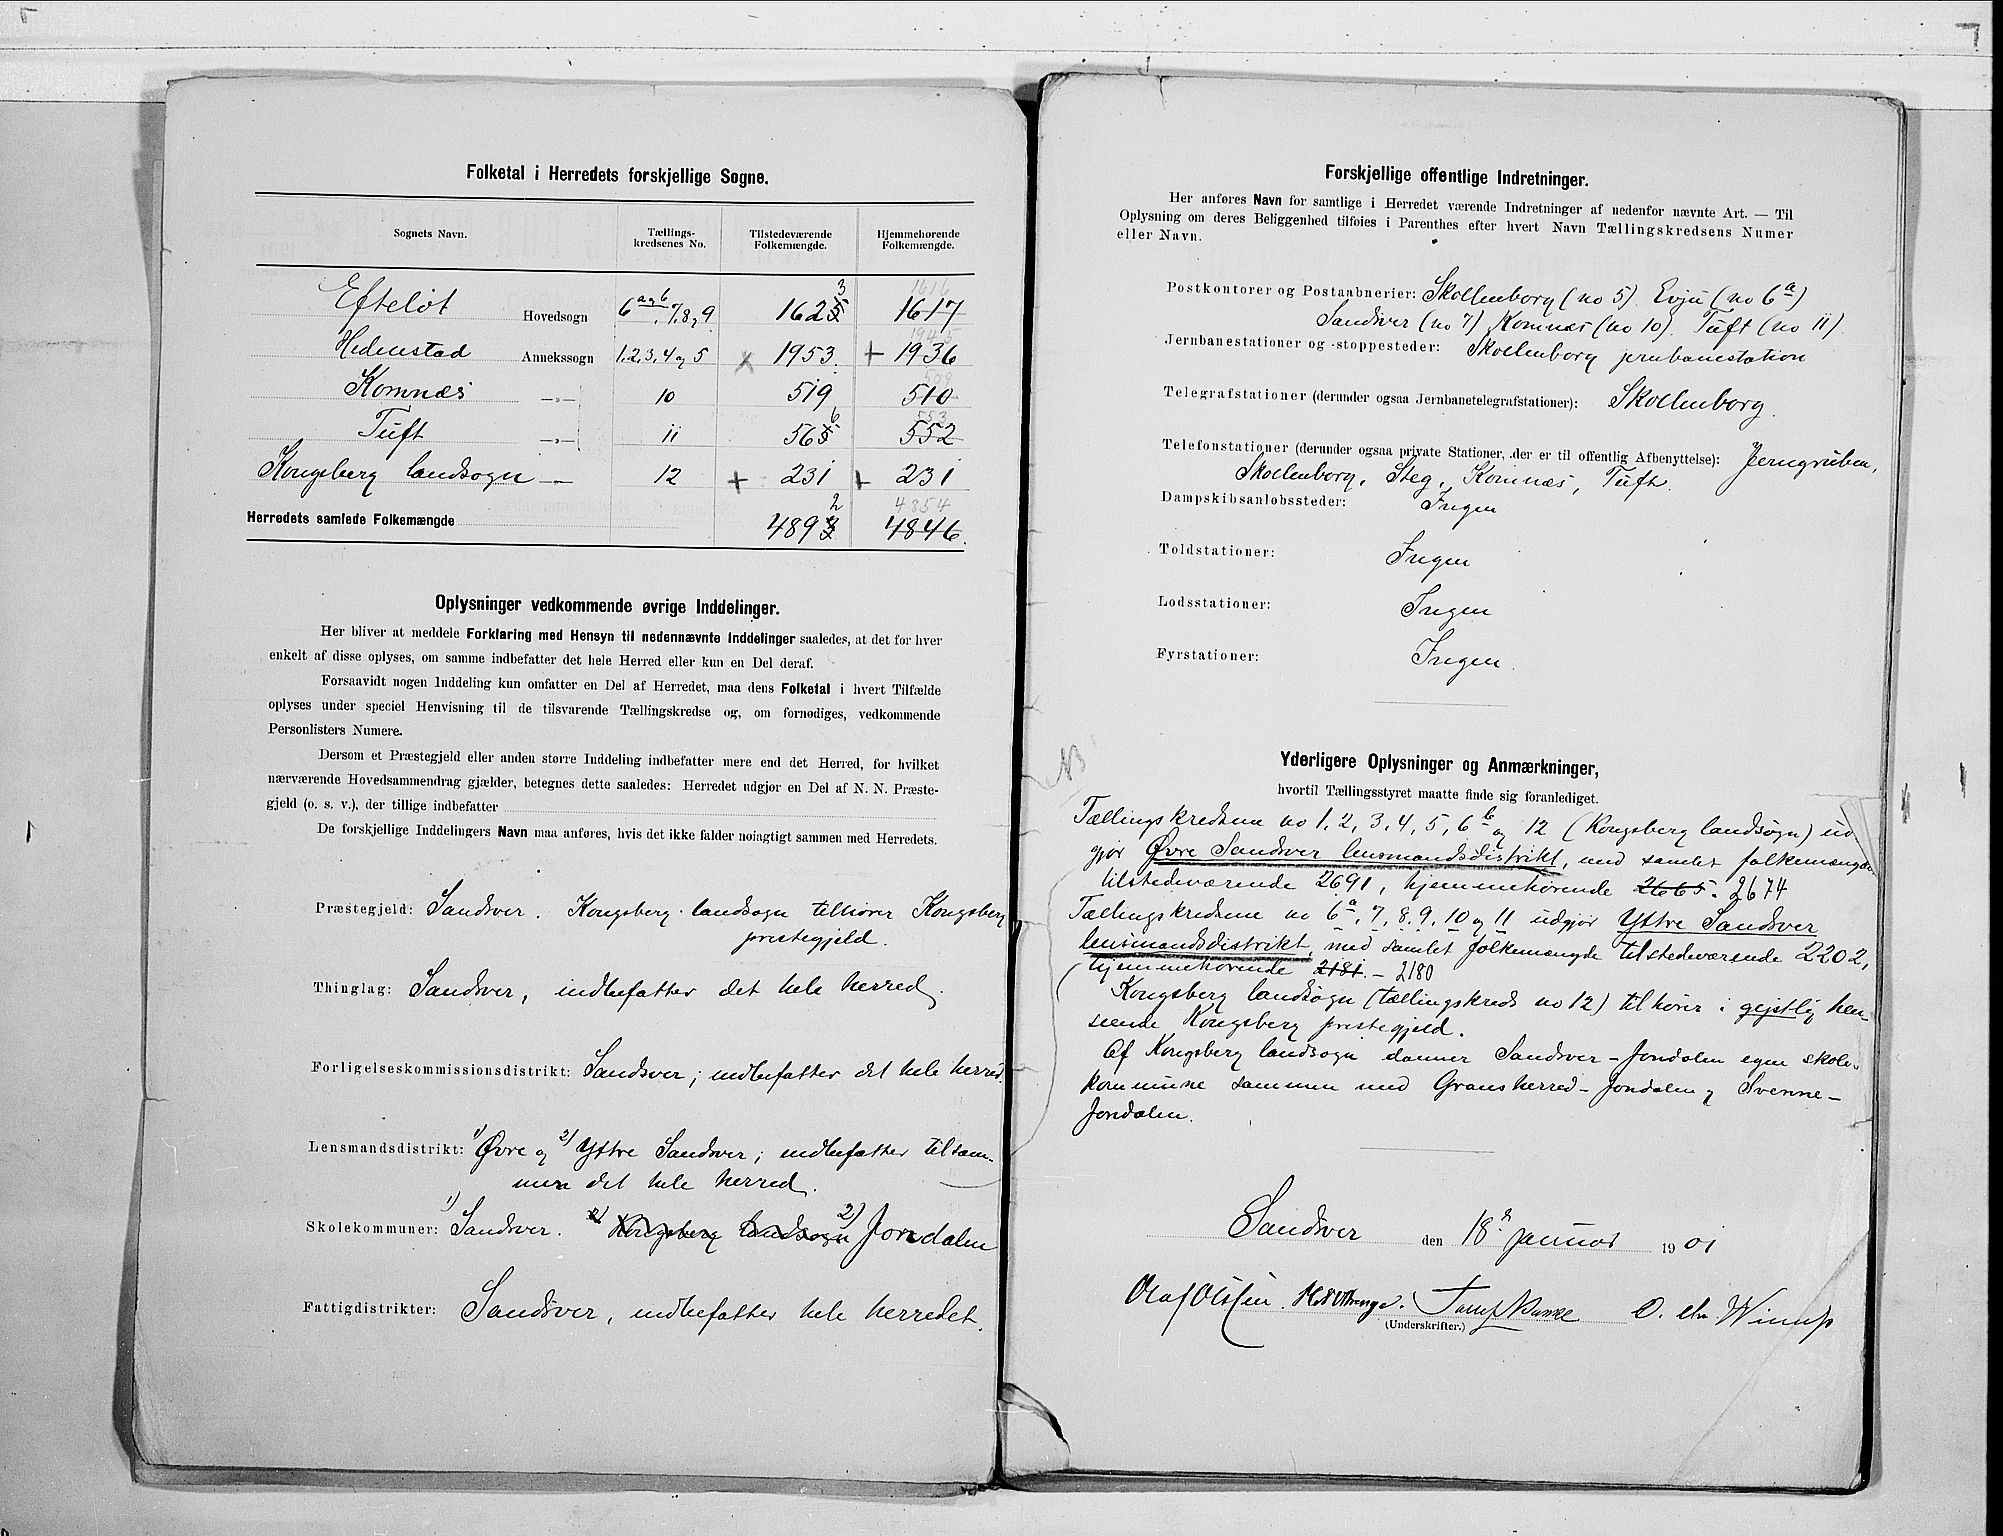 Folketal i Herredets forskjellige Sogne.
Sognets Navn. Tællings-kredsenes No. Tilstedeværende Folkemængde. Hjemmehørende Folkemængde.
1616
Efteløt Hovedsogn 6 a og b, 7, 8 og 9. 1625 3 1617
1945
Hedenstad Annekssogn 1, 2, 3, 4 og 5 x 1953. + 1936
509
Komnæs —„— 10 519 510
553
Tuft —„— 11 565 6 552
Kongsberg landsogn — 12 + 231 + 231
4854
Herredets samlede Folkemængde 4893 2 4846.
Oplysninger vedkommende øvrige Inddelinger.
Her bliver at meddele Forklaring med Hensyn til nedennævnte Inddelinger saaledes, at det for hver
enkelt af disse oplyses, om samme indbefatter det hele Herred eller kun en Del deraf.
Forsaavidt nogen Inddeling kun omfatter en Del af Herredet, maa dens Folketal i hvert Tilfælde
oplyses under speciel Henvisning til de tilsvarende Tællingskredse og, om fornødiges, vedkommende
Personlisters Numere.
Dersom et Præstegjeld eller anden større Inddeling indbefatter mere end det Herred, for hvilket
nærværende Hovedsammendrag gjælder, betegnes dette saaledes: Herredet udgjør en Del af N. N. Præste-
gjeld (o. s. v.), der tillige indbefatter
De forskjellige Inddelingers Navn maa anføres, hvis det ikke falder nøiagtigt sammen med Herredets.
Præstegjeld: Sandsver. Kongsberg landsogn tilhører Kongsberg
prestegjeld.
Thinglag: Sandsver, indbefatter det hele herred.
Forligelseskommissionsdistrikt: Sandsver; indbefatter det hele herred.
Lensmandsdistrikt: 1) Øvre og 2) Yttre Sandsver; indbefatter tilsam-
men det hele herred.
Skolekommuner: 1) Sandsver. 2) Kongsberg landsogn 2) Jondalen
Fattigdistrikter: Sandsver, indbefatter hele herredet.
Forskjellige offentlige Indretninger.
Her anføres Navn for samtlige i Herredet værende Indretninger af nedenfor nævnte Art. — Til
Oplysning om deres Beliggenhed tilføies i Parenthes efter hvert Navn Tællingskredsens Numer
eller Navn.
Postkontorer og Postaabnerier: Skollenborg (no 5). Evju (no 6a)
Sandsver (no 7) Komnæs (no 10). Tuft (no 11).
Jernbanestationer og -stoppesteder: Skollenborg jernbanestation
Telegrafstationer (derunder ogsaa Jernbanetelegrafstationer): Skollenborg.
Telefonstationer (derunder ogsaa private Stationer, der er til offentlig Afbenyttelse): Jerngruben,
Skollenborg, Steg, Komnæs, Tuft.
Dampskibsanløbssteder: Ingen
Toldstationer: Ingen
Lodsstationer: Ingen
Fyrstationer: Ingen.
NB
Yderligere Oplysninger og Anmærkninger,
hvortil Tællingsstyret maatte finde sig foranlediget.
Tællingskredsene no 1, 2, 3, 4, 5, 6b og 12 (Kongsberg landsogn) ud
gjør Øvre Sandsver lensmandsdistrikt, med samlet folkemængde
tilstedeværende 2691, hjemmehørende 2665. 2674
Tællingskredsene no 6a, 7, 8, 9, 10 og 11 udgjør Yttre Sandsver
lensmandsdistrikt, med samlet folkemængde tilstedeværende 2202,
hjemmehørende 2181. – 2180
Kongsberg landsogn (tællingskreds no 12) tilhører i gejstlig hen-
seende Kongsberg prestegjeld.
Af Kongsberg landsogn danner Sandsver-Jondalen egen skole-
kommune sammen med Gransherred-Jondalen og Svenne-
Jondalen.
Sandsver den 18de januar 1901
Olaf Olssen.
(Underskrifter.)